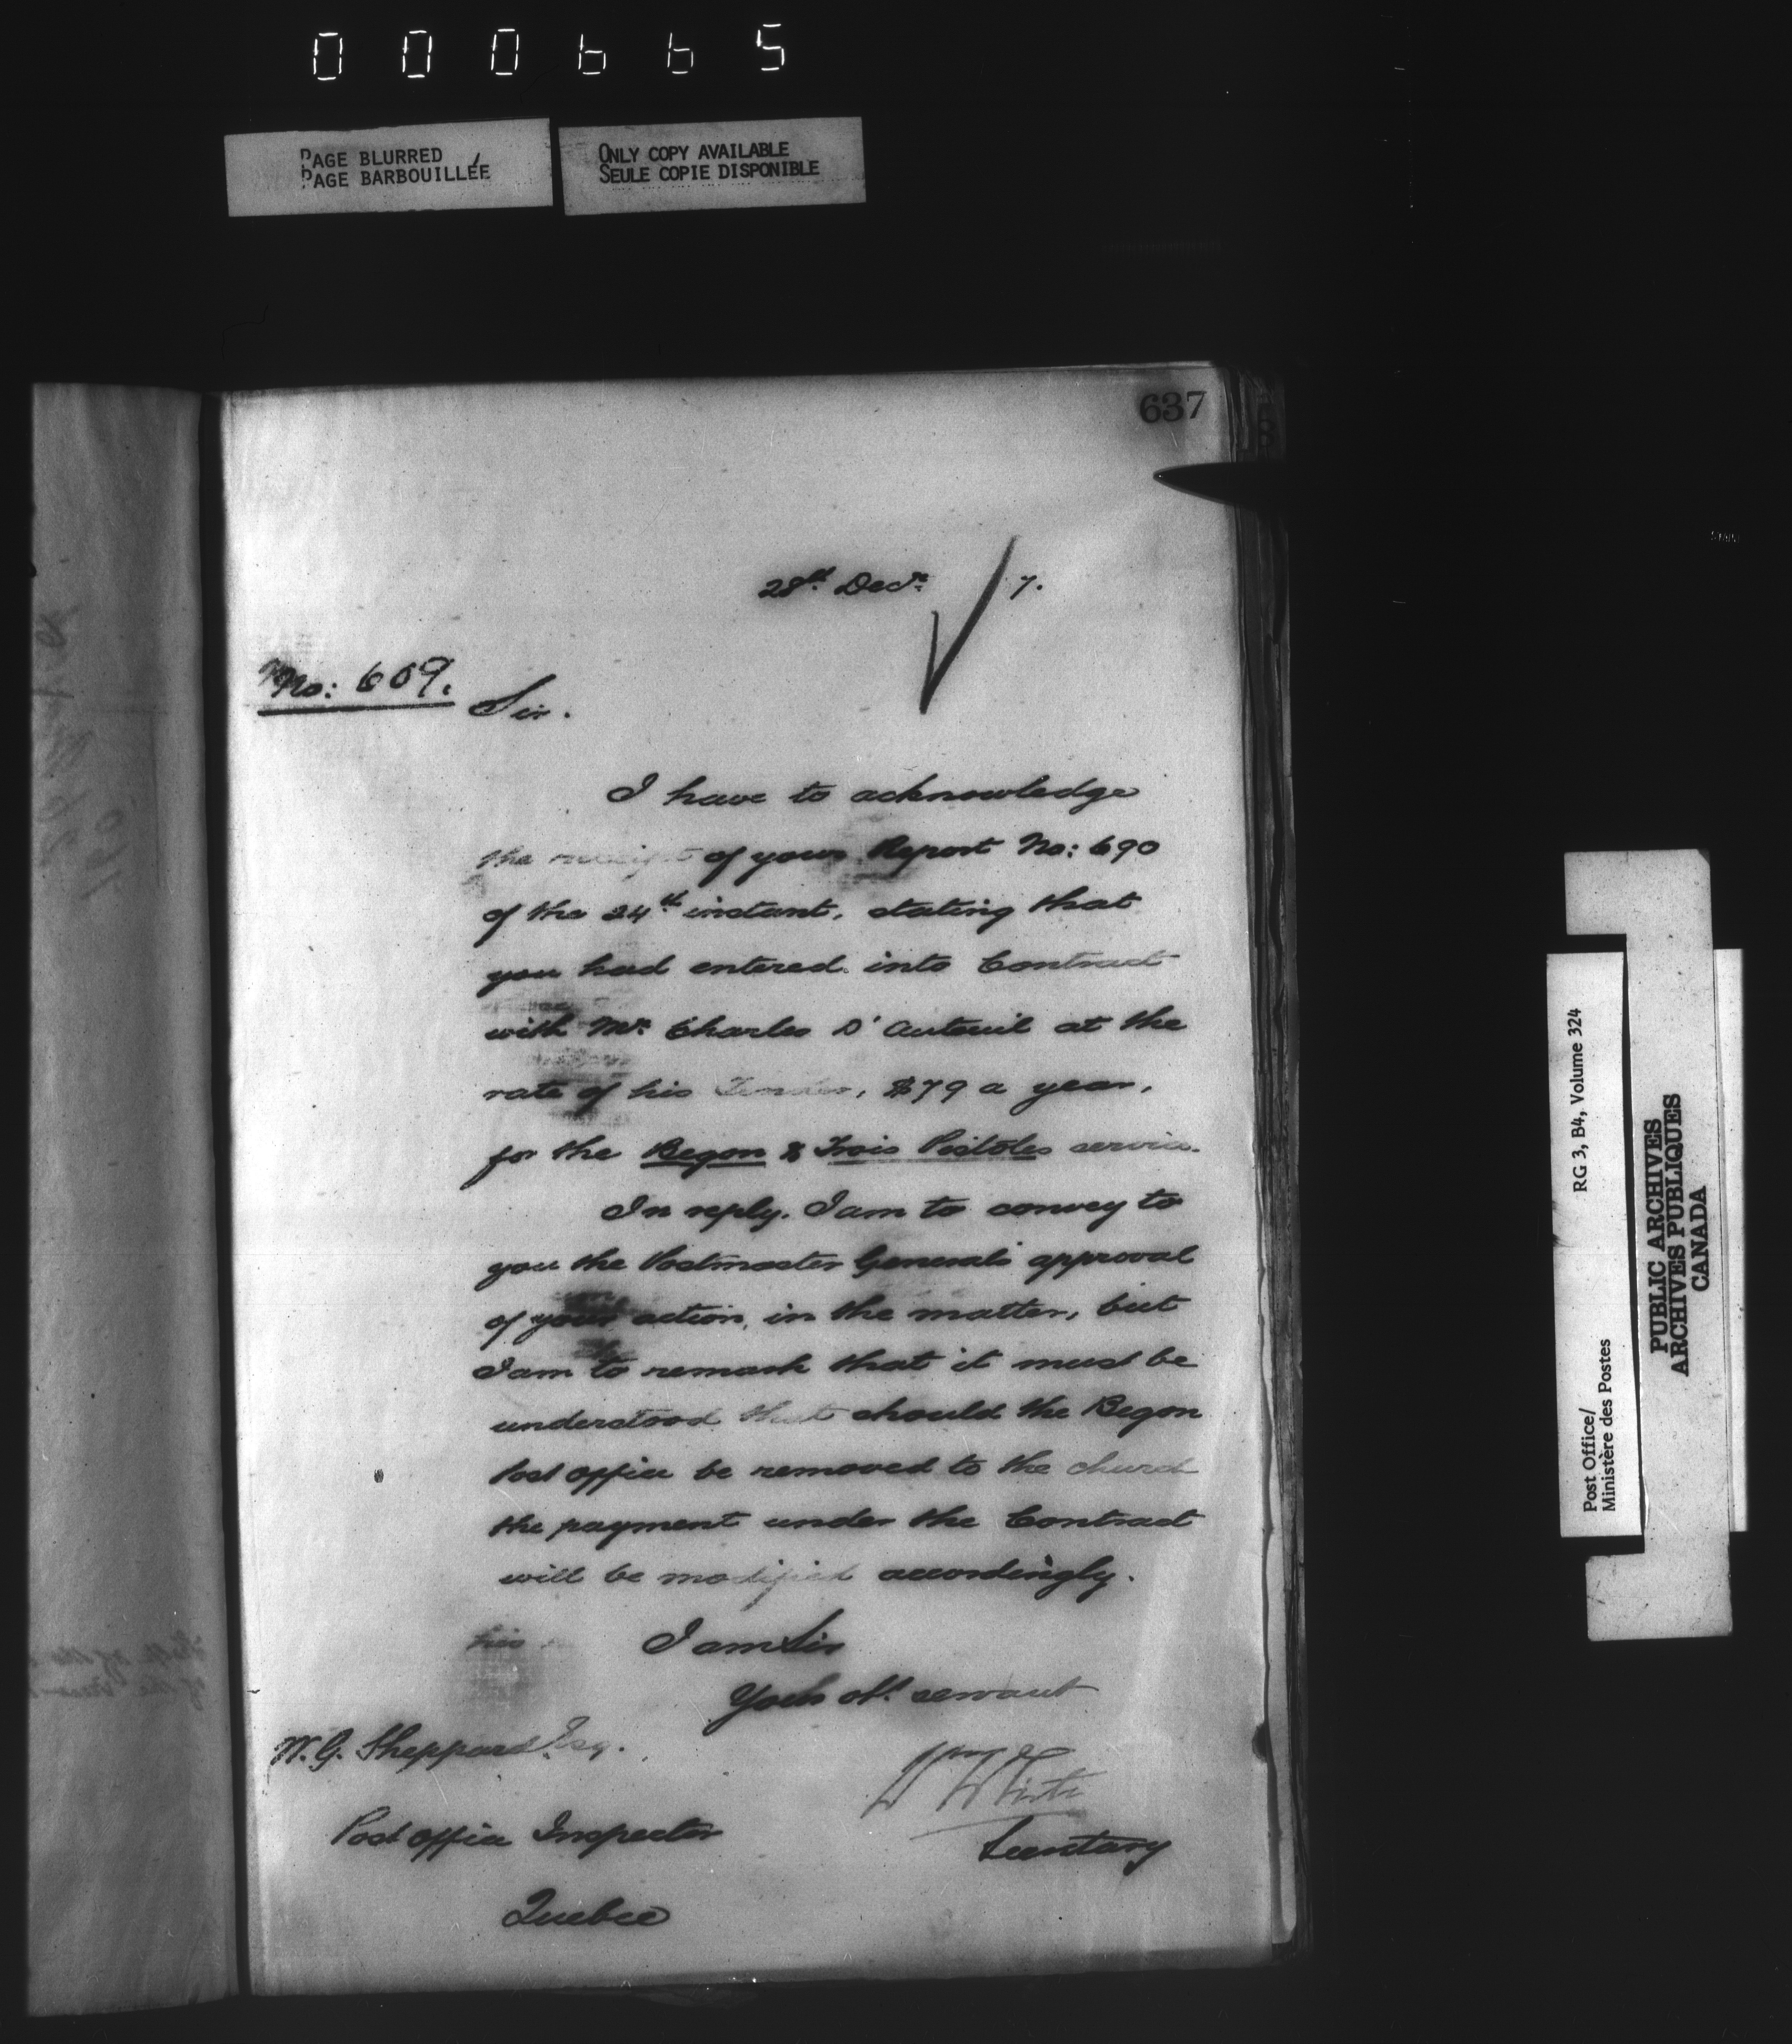 000665
PAGE BLURRED
PAGE BARBOUILLÉE
ONLY COPY AVAILABLE
SEULE COPIE DISPONIBLE
637
28th Decr. 7.
No: 609.
Sir.
I have to acknowledge
the receipt of your Report No: 690
of the 24th instant, stating that
you had entered into Contract
with Mr. Charles D'Auteuil at the
rate of his Tender, $79 a year,
for the Begon & Trois Pistoles service.
In reply. I am to convey to
you the Postmaster General's approval
of your action, in the matter, but
I am to remark that it must be
understood that should the Begon
Post Office be removed to the church
the payment under the Contract
will be modified accordingly.
I am Sir
Your obt. servant
W.G. Sheppard Esq.
Wm White
Secretary
Post Office Inspector
Quebec
RG 3, B4, Volume 324
Post Office/
Ministère des Postes
PUBLIC ARCHIVES
ARCHIVES PUBLIQUES
CANADA